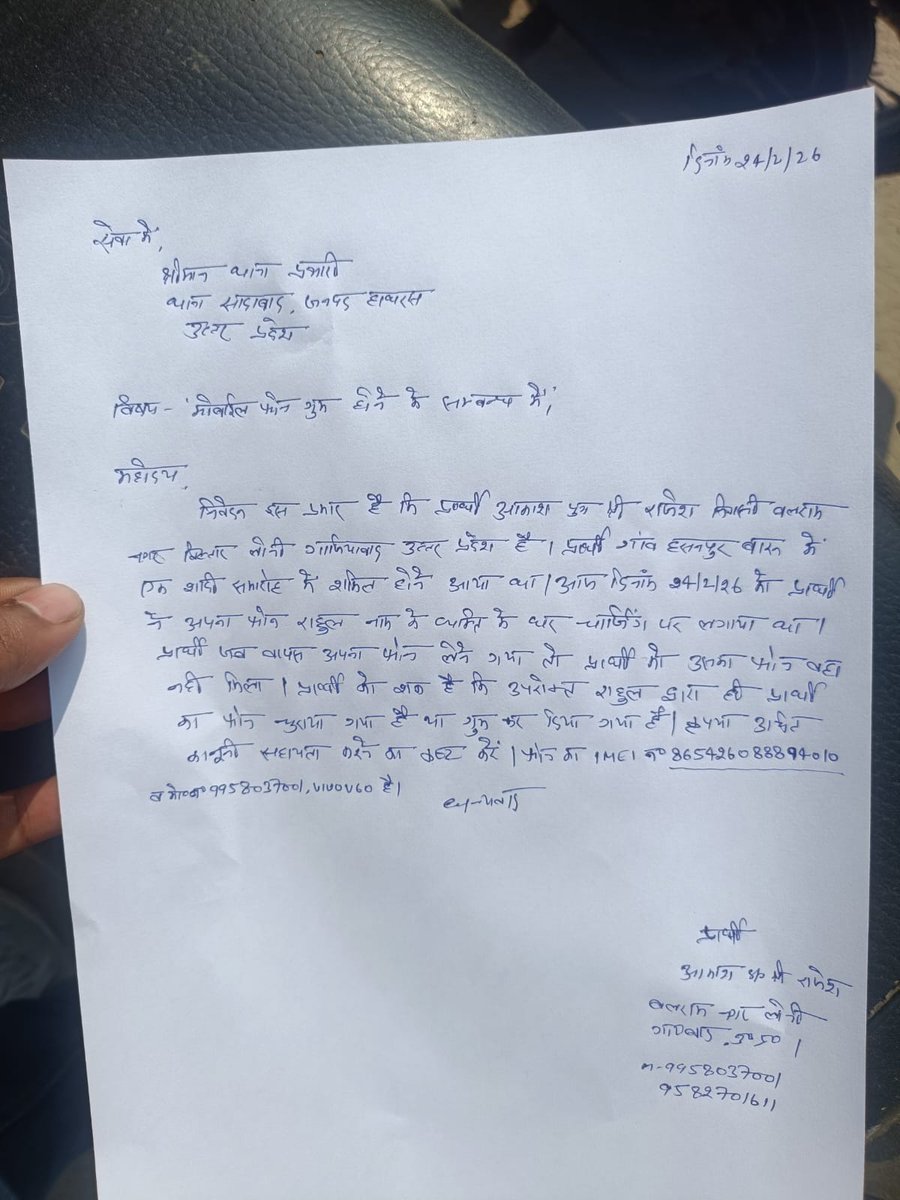 दिनांक 24/2/26
सेवा में,
श्रीमान थाना प्रभारी
थाना सादाबाद, जनपद हाथरस
उत्तर प्रदेश
विषय - मोबाईल फोन गुम होने के सम्बन्ध में,
महोदय,
निवेदन इस प्रकार है कि प्रार्थी आकाश पुत्र श्री राजेश निवासी बलराम
नगर विस्तार लोनी गाजियाबाद उत्तर प्रदेश है। प्रार्थी गांव हसनपुर बारू में
एक शादी समारोह में शामिल होने आया था। आज दिनांक 24/2/26 को प्रार्थी
ने अपना फोन राहुल नाम के व्यक्ति के घर चार्जिंग पर लगाया था।
प्रार्थी जब वापस अपना फोन लेने गया तो प्रार्थी को उसका फोन वहा
नही मिला। प्रार्थी को शक है कि उपरोक्त राहुल द्वारा ही प्रार्थी
का फोन चुराया गया है या गुम कर दिया गया है। कृपया उचित
कानूनी सहायता करने का कष्ट करें। फोन का IMEI न० 865426088894010
व मो०न० 9958037001, VIVO V60 है।
धन्यवाद
प्रार्थी
आकाश S/o श्री राजेश
बलराम नगर लोनी
गा०बाद, उ०प्र०।
m-9958037001
9582701611